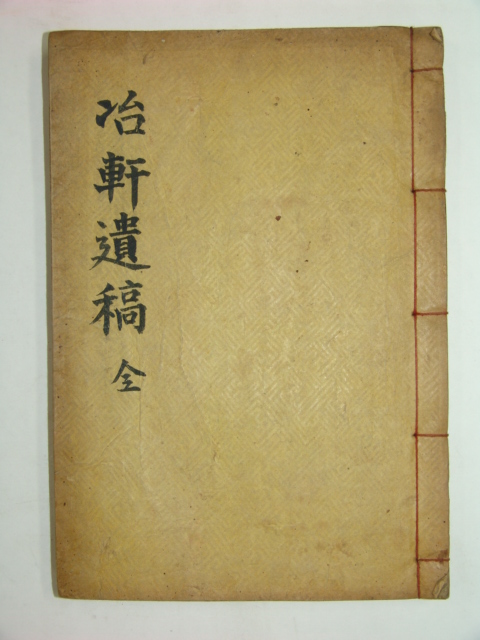 冶軒遺稿 全